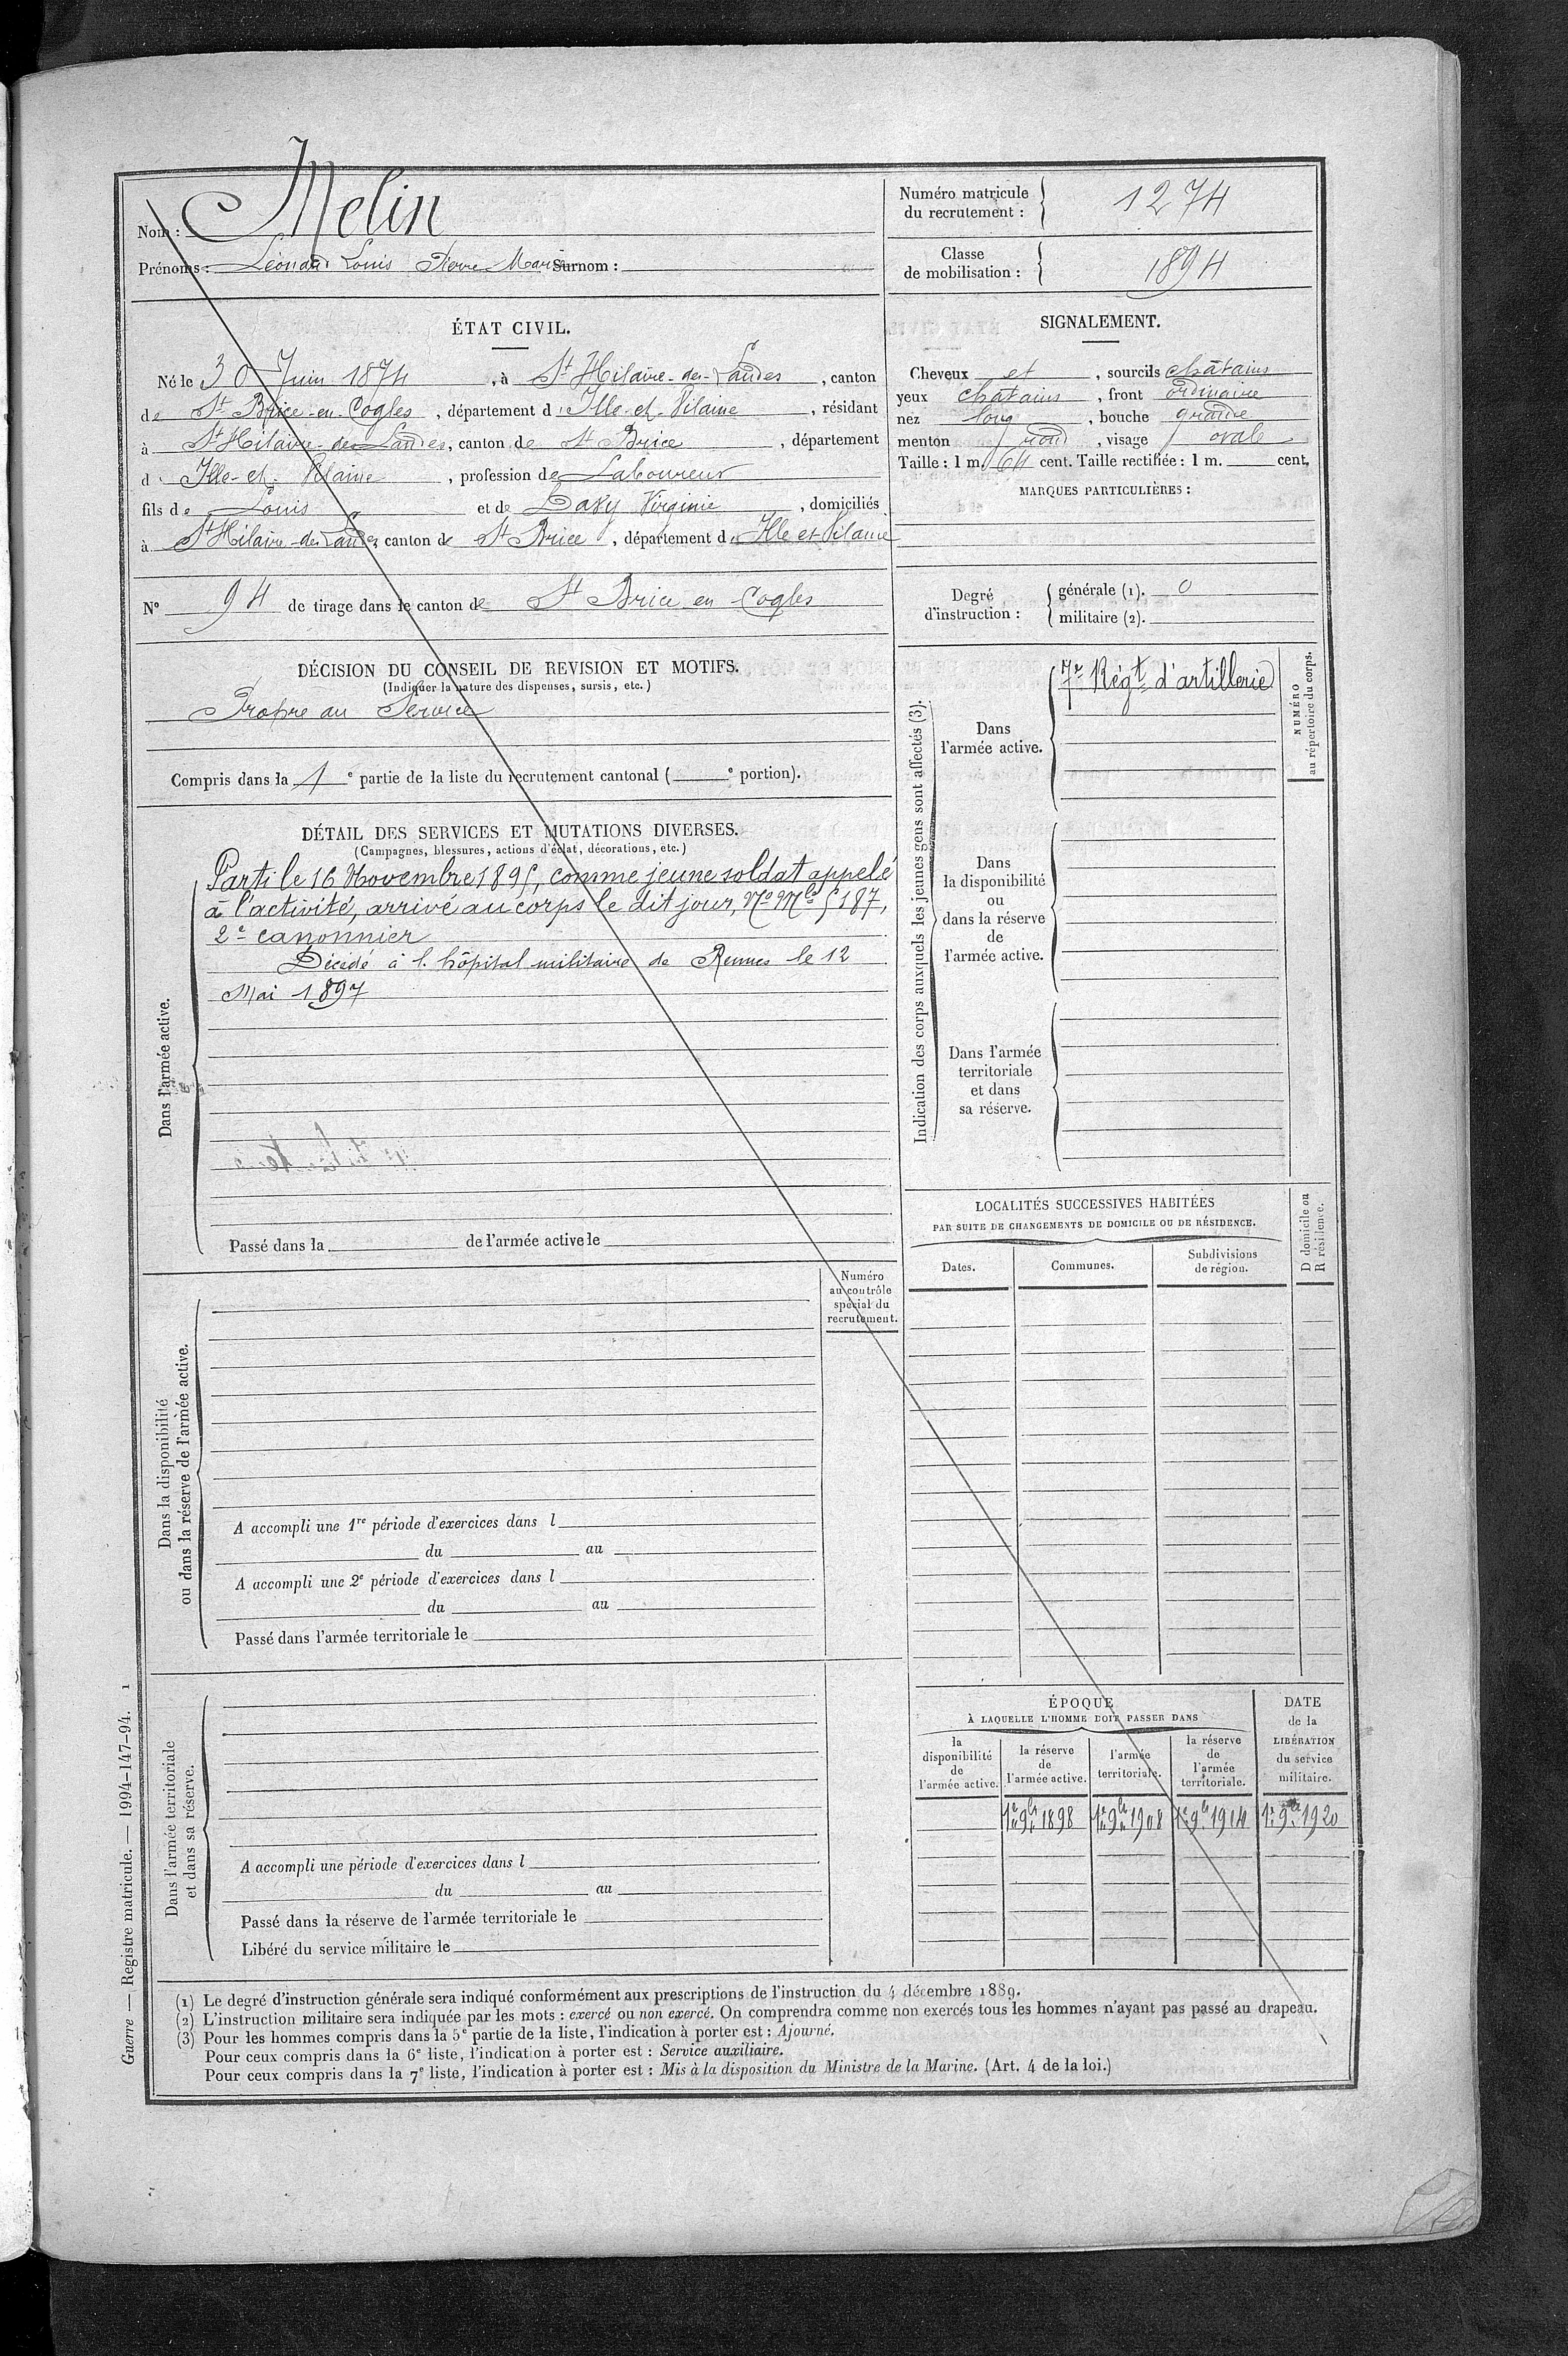 Nom : Melin
Prénoms : Léonard Louis Pierre Marie Surnom :
Numéro matricule
du recrutement :
1274
Classe
de mobilisation :
1894
ÉTAT CIVIL.
Né le 30 Juin 1874, à St Hilaire-des-Landes, canton
de St Brice-en-Cogles, département d'Ille-et-Vilaine, résidant
à St Hilaire-des-Landes, canton de St Brice, département
d'Ille-et-Vilaine, profession de Laboureur
fils de Louis et de Virginie, domiciliés
à St Hilaire-des-Landes, canton de St Brice, département d'Ille et Vilaine
N° 94 de tirage dans le canton de St Brice en Cogles
SIGNALEMENT.
Cheveux et, sourcils châtains
yeux châtains, front ordinaire
nez long, bouche grande
menton rond, visage ovale
Taille : 1 m. 64 cent. Taille rectifiée : 1 m. cent.
MARQUES PARTICULIÈRES :
Degré
d'instruction :
générale (1). 0
militaire (2).
DÉCISION DU CONSEIL DE REVISION ET MOTIFS.
(Indiquer la nature des dispenses, sursis, etc.)
Propre au Service
Compris dans la 1e partie de la liste du recrutement cantonal ( e portion).
DÉTAIL DES SERVICES ET MUTATIONS DIVERSES.
(Campagnes, blessures, actions d'éclat, décorations, etc.)
Dans l'armée active.
Parti le 16 Novembre 1895, comme jeune soldat appelé
à l'activité, arrivé au corps le dit jour, No Mle 5187,
2e canonnier
Décédé à l'hôpital militaire de Rennes le 12
Mai 1897
Passé dans la de l'armée active le
Indication des corps auxquels les jeunes gens sont affectés (3).
Dans
l'armée active.
7e Régt d'artillerie
NUMÉRO
au répertoire du corps.
Dans
la disponibilité
ou
dans la réserve
de
l'armée active.
Dans l'armée
territoriale
et dans
sa réserve.
LOCALITÉS SUCCESSIVES HABITÉES
PAR SUITE DE CHANGEMENTS DE DOMICILE OU DE RÉSIDENCE.
Dates.
Communes.
Subdivisions
de région.
D domicile ou
R résidence.
Dans la disponibilité
ou dans la réserve de l'armée active.
Numéro
au contrôle
spécial du
recrutement.
A accompli une 1re période d'exercices dans l
du au
A accompli une 2e période d'exercices dans l
du au
Passé dans l'armée territoriale le
Dans l'armée territoriale
et dans sa réserve.
A accompli une période d'exercices dans l
du au
Passé dans la réserve de l'armée territoriale le
Libéré du service militaire le
ÉPOQUE
À LAQUELLE L'HOMME DOIT PASSER DANS
la
disponibilité
de
l'armée active.
la réserve
de
l'armée active.
l'armée
territoriale.
la réserve
de
l'armée
territoriale.
DATE
de la
LIBÉRATION
du service
militaire.
1er 9bre 1898 1er 9bre 1908 1er 9bre 1914 1er 9bre 1920
(1) Le degré d'instruction générale sera indiqué conformément aux prescriptions de l'instruction du 4 décembre 1889.
(2) L'instruction militaire sera indiquée par les mots : exercé ou non exercé. On comprendra comme non exercés tous les hommes n'ayant pas passé au drapeau.
(3) Pour les hommes compris dans la 5e partie de la liste, l'indication à porter est : Ajourné.
Pour ceux compris dans la 6e liste, l'indication à porter est : Service auxiliaire.
Pour ceux compris dans la 7e liste, l'indication à porter est : Mis à la disposition du Ministre de la Marine. (Art. 4 de la loi.)
Guerre — Registre matricule. — 1994-147-94. 1